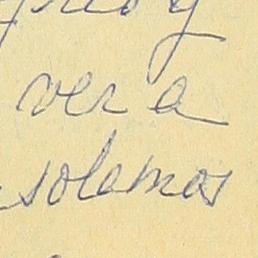 y
ver a
solamos